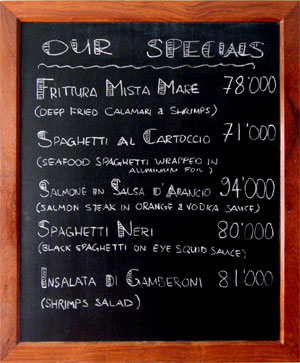 OUR SPECIALS
FRITTURA MISTA MARE 78'000
(DEEP FRIED CALAMARI & SHRIMPS)
SPAGHETTI AL CARTOCCIO 71'000
(SEAFOOD SPAGHETTI WRAPPED IN
ALUMINIUM FOIL)
SALMONE IN SALSA D'ARANCIO 94'000
(SALMON STEAK IN ORANGE & VODKA SAUCE)
SPAGHETTI NERI 80'000
(BLACK SPAGHETTI ON EYE SQUID SAUCE)
INSALATA DI GAMBERONI 81'000
(SHRIMPS SALAD)